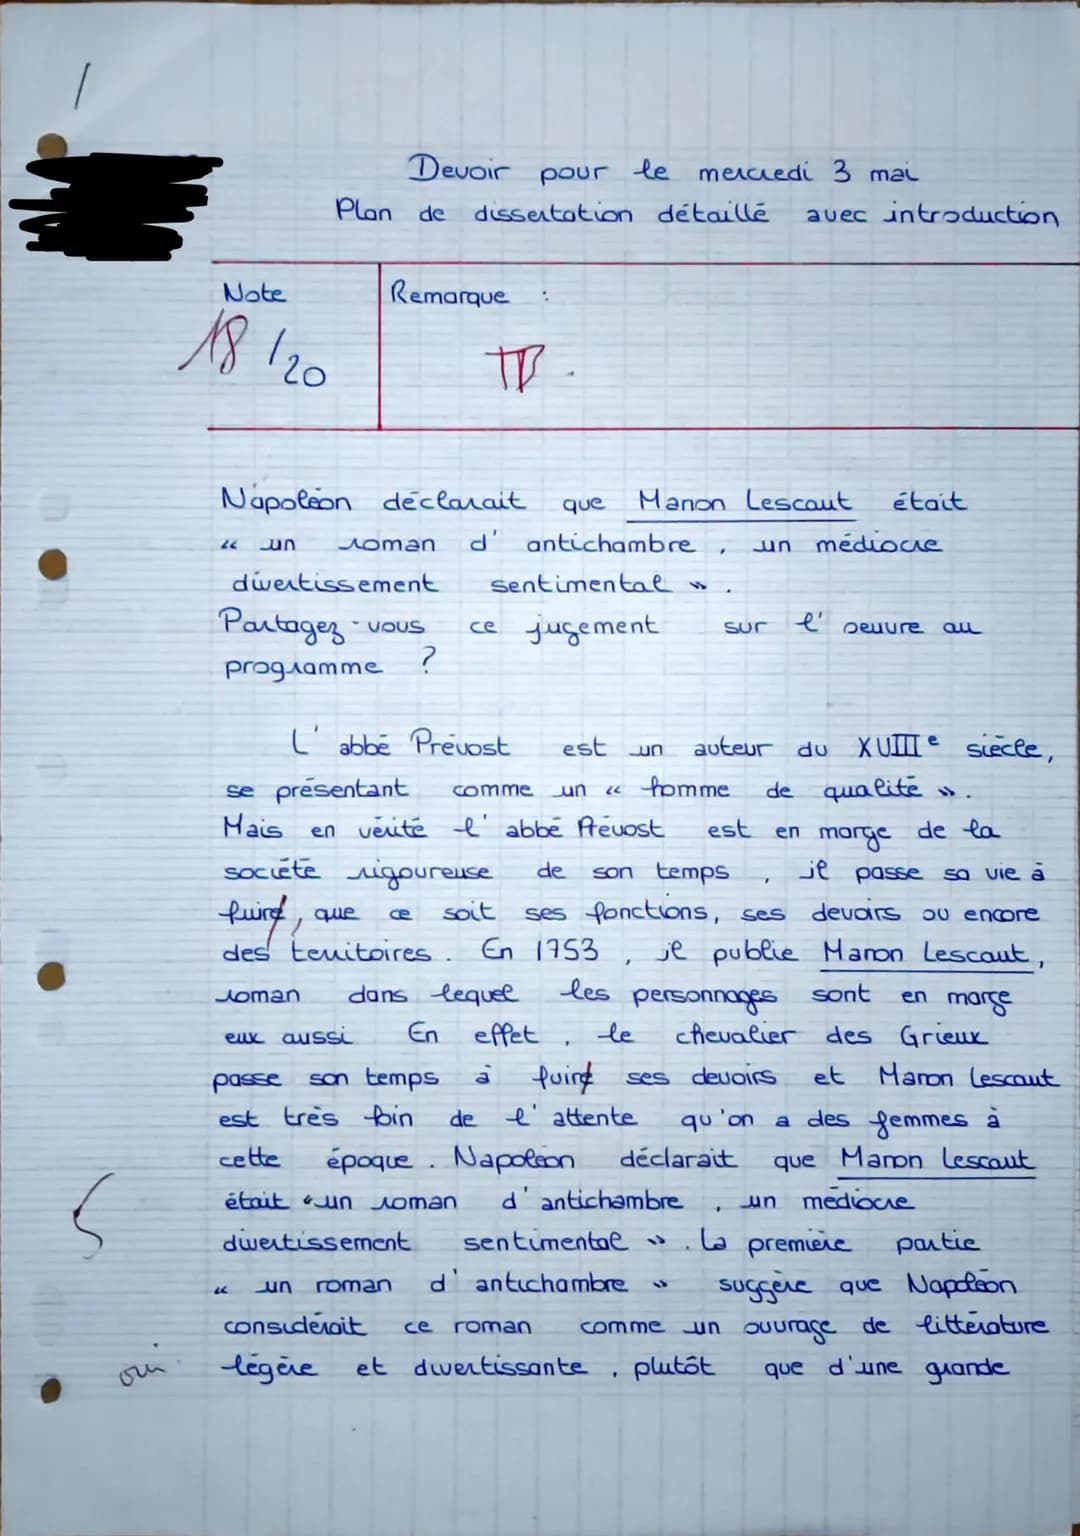 Devoir pour le mercredi 3 mai
Plan de dissertation détaillé avec introduction
Note
Remarque :
18 /20
TB.
Napoléon déclarait que Manon Lescaut était
« un roman d'antichambre, un médiocre
divertissement sentimental ».
Partagez-vous ce jugement sur l'oeuvre au
programme ?
L'abbé Prévost est un auteur du XVIIIe siècle,
se présentant comme un « homme de qualité ».
Mais en vérité l'abbé Prévost est en marge de la
société rigoureuse de son temps, il passe sa vie à
fuire, que ce soit ses fonctions, ses devoirs ou encore
des territoires. En 1753, il publie Manon Lescaut,
roman dans lequel les personnages sont en marge
eux aussi En effet, le chevalier des Grieux
passe son temps à fuire ses devoirs et Manon Lescaut
est très loin de l'attente qu'on a des femmes à
cette époque. Napoléon déclarait que Manon Lescaut
était « un roman d'antichambre, un médiocre
divertissement sentimental ». La première partie
« un roman d'antichambre » suggère que Napoléon
considérait ce roman comme un ouvrage de littérature
oui légère et divertissante, plutôt que d'une grande